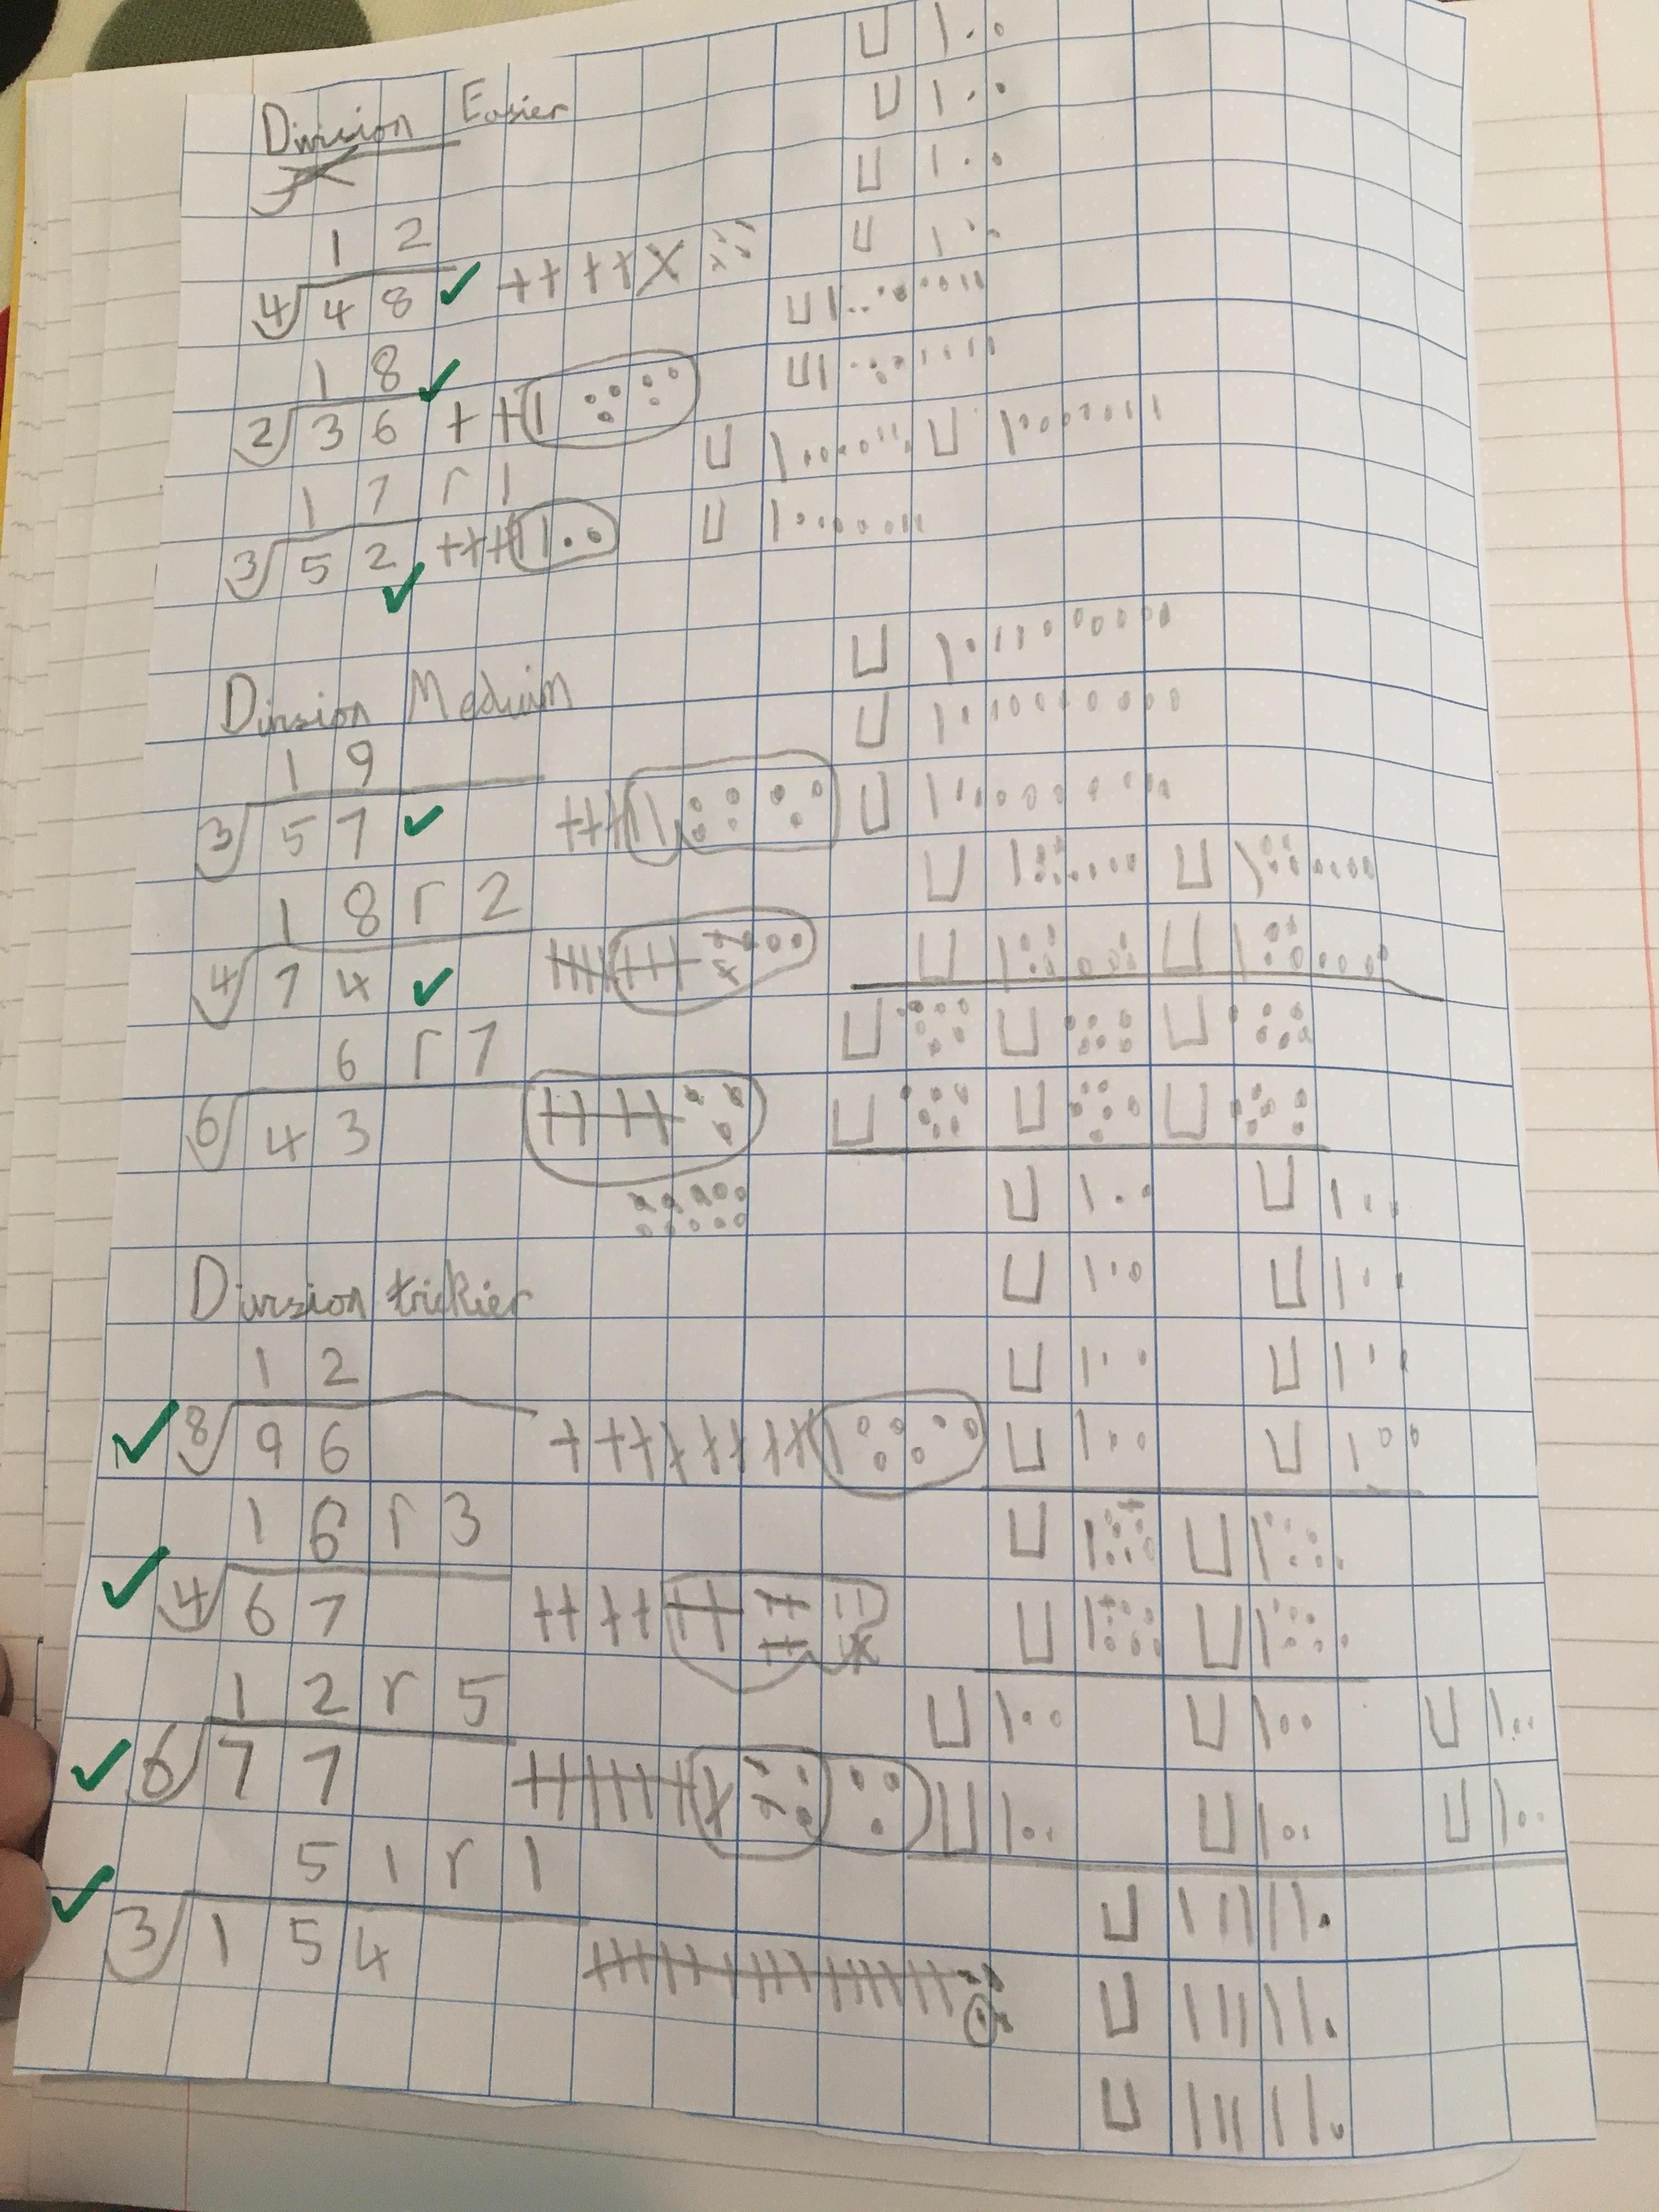 Division Easier
1 2
4 4 8
1 8
2 3 6
1 7 r 1
3 5 2
Divsion Meduim
1 9
3 5 7
1 8 r 2
4 7 4
6 r 7
6 4 3
Divsion trickier
1 2
8 9 6
1 6 r 3
4 6 7
1 2 r 5
6 7 7
5 1 r 1
3 1 5 4